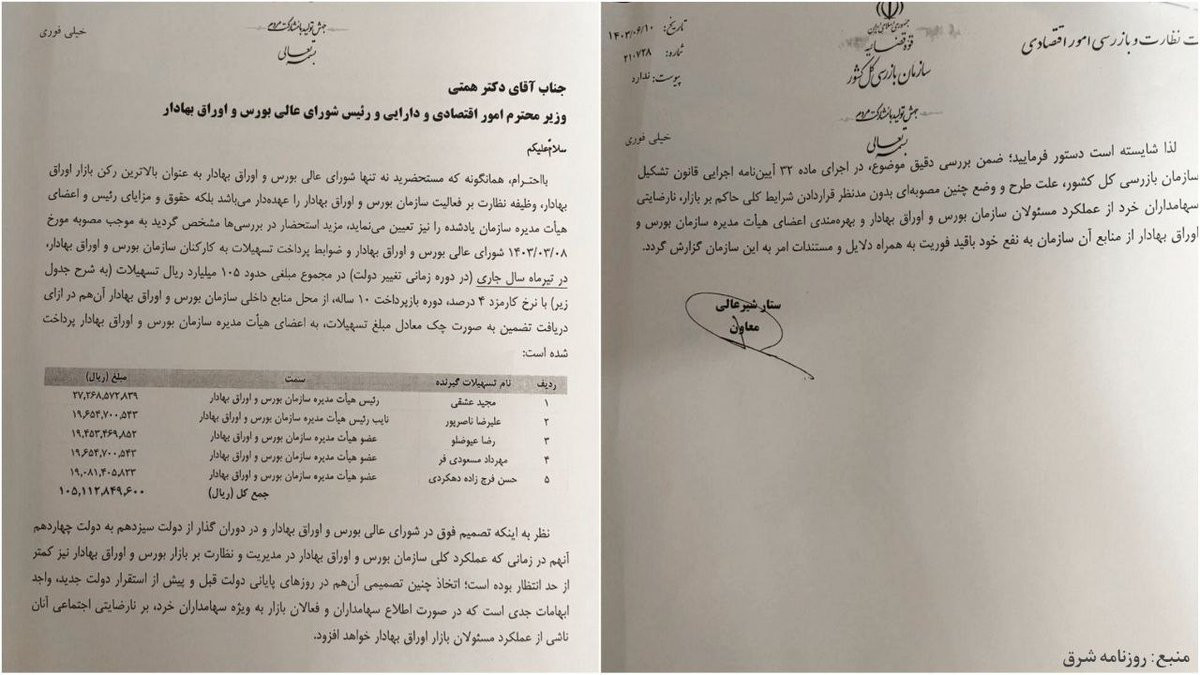 خیلی فوری
جهش تولید با مشارکت مردم
بسمه تعالی
جناب آقای دکتر همتی
وزیر محترم امور اقتصادی و دارایی و رئیس شورای عالی بورس و اوراق بهادار
سلام علیکم
بااحترام، همانگونه که مستحضرید نه تنها شورای عالی بورس و اوراق بهادار به عنوان بالاترین رکن بازار اوراق
بهادار، وظیفه نظارت بر فعالیت سازمان بورس و اوراق بهادار را عهده‌دار می‌باشد بلکه حقوق و مزایای رئیس و اعضای
هیأت مدیره سازمان یادشده را نیز تعیین می‌نماید، مزید استحضار در بررسی‌ها مشخص گردید به موجب مصوبه مورخ
۱۴۰۳/۰۳/۰۸ شورای عالی بورس و اوراق بهادار و ضوابط پرداخت تسهیلات به کارکنان سازمان بورس و اوراق بهادار،
در تیرماه سال جاری (در دوره زمانی تغییر دولت) در مجموع مبلغی حدود ۱۰۵ میلیارد ریال تسهیلات (به شرح جدول
زیر) با نرخ کارمزد ۴ درصد، دوره بازپرداخت ۱۰ ساله، از محل منابع داخلی سازمان بورس و اوراق بهادار آن‌هم در ازای
دریافت تضمین به صورت چک معادل مبلغ تسهیلات، به اعضای هیأت مدیره سازمان بورس و اوراق بهادار پرداخت
شده است:
ردیف نام تسهیلات گیرنده سمت مبلغ (ریال)
۱ مجید عشقی رئیس هیأت مدیره سازمان بورس و اوراق بهادار ۲۷,۲۶۸,۵۷۲,۸۳۹
۲ علیرضا ناصرپور نایب رئیس هیأت مدیره سازمان بورس و اوراق بهادار ۱۹,۶۵۴,۷۰۰,۵۴۳
۳ رضا عیوضلو عضو هیأت مدیره سازمان بورس و اوراق بهادار ۱۹,۴۵۳,۴۶۹,۸۵۲
۴ مهرداد مسعودی فر عضو هیأت مدیره سازمان بورس و اوراق بهادار ۱۹,۶۵۴,۷۰۰,۵۴۳
۵ حسن فرج زاده دهکردی عضو هیأت مدیره سازمان بورس و اوراق بهادار ۱۹,۰۸۱,۴۰۵,۸۲۳
جمع کل (ریال) ۱۰۵,۱۱۲,۸۴۹,۶۰۰
نظر به اینکه تصمیم فوق در شورای عالی بورس و اوراق بهادار و در دوران گذار از دولت سیزدهم به دولت چهاردهم
آنهم در زمانی که عملکرد کلی سازمان بورس و اوراق بهادار در مدیریت و نظارت بر بازار بورس و اوراق بهادار نیز کمتر
از حد انتظار بوده است؛ اتخاذ چنین تصمیمی آن‌هم در روزهای پایانی دولت قبل و پیش از استقرار دولت جدید، واجد
ابهامات جدی است که در صورت اطلاع سهامداران و فعالان بازار به ویژه سهامداران خرد، بر نارضایتی اجتماعی آنان
ناشی از عملکرد مسئولان بازار اوراق بهادار خواهد افزود.
تاریخ: ۱۴۰۳/۰۶/۱۰
شماره: ۲۱۰۷۲۸
پیوست: ندارد
جمهوری اسلامی ایران
قوه قضائیه
سازمان بازرسی کل کشور
ت نظارت و بازرسی امور اقتصادی
جهش تولید با مشارکت مردم
بسمه تعالی
خیلی فوری
لذا شایسته است دستور فرمایید؛ ضمن بررسی دقیق موضوع، در اجرای ماده ۳۲ آیین‌نامه اجرایی قانون تشکیل
سازمان بازرسی کل کشور، علت طرح و وضع چنین مصوبه‌ای بدون مدنظر قراردادن شرایط کلی حاکم بر بازار، نارضایتی
سهامداران خرد از عملکرد مسئولان سازمان بورس و اوراق بهادار و بهره‌مندی اعضای هیأت مدیره سازمان بورس و
اوراق بهادار از منابع آن سازمان به نفع خود باقید فوریت به همراه دلایل و مستندات امر به این سازمان گزارش گردد.
ستار شیرعالی
معاون
منبع: روزنامه شرق